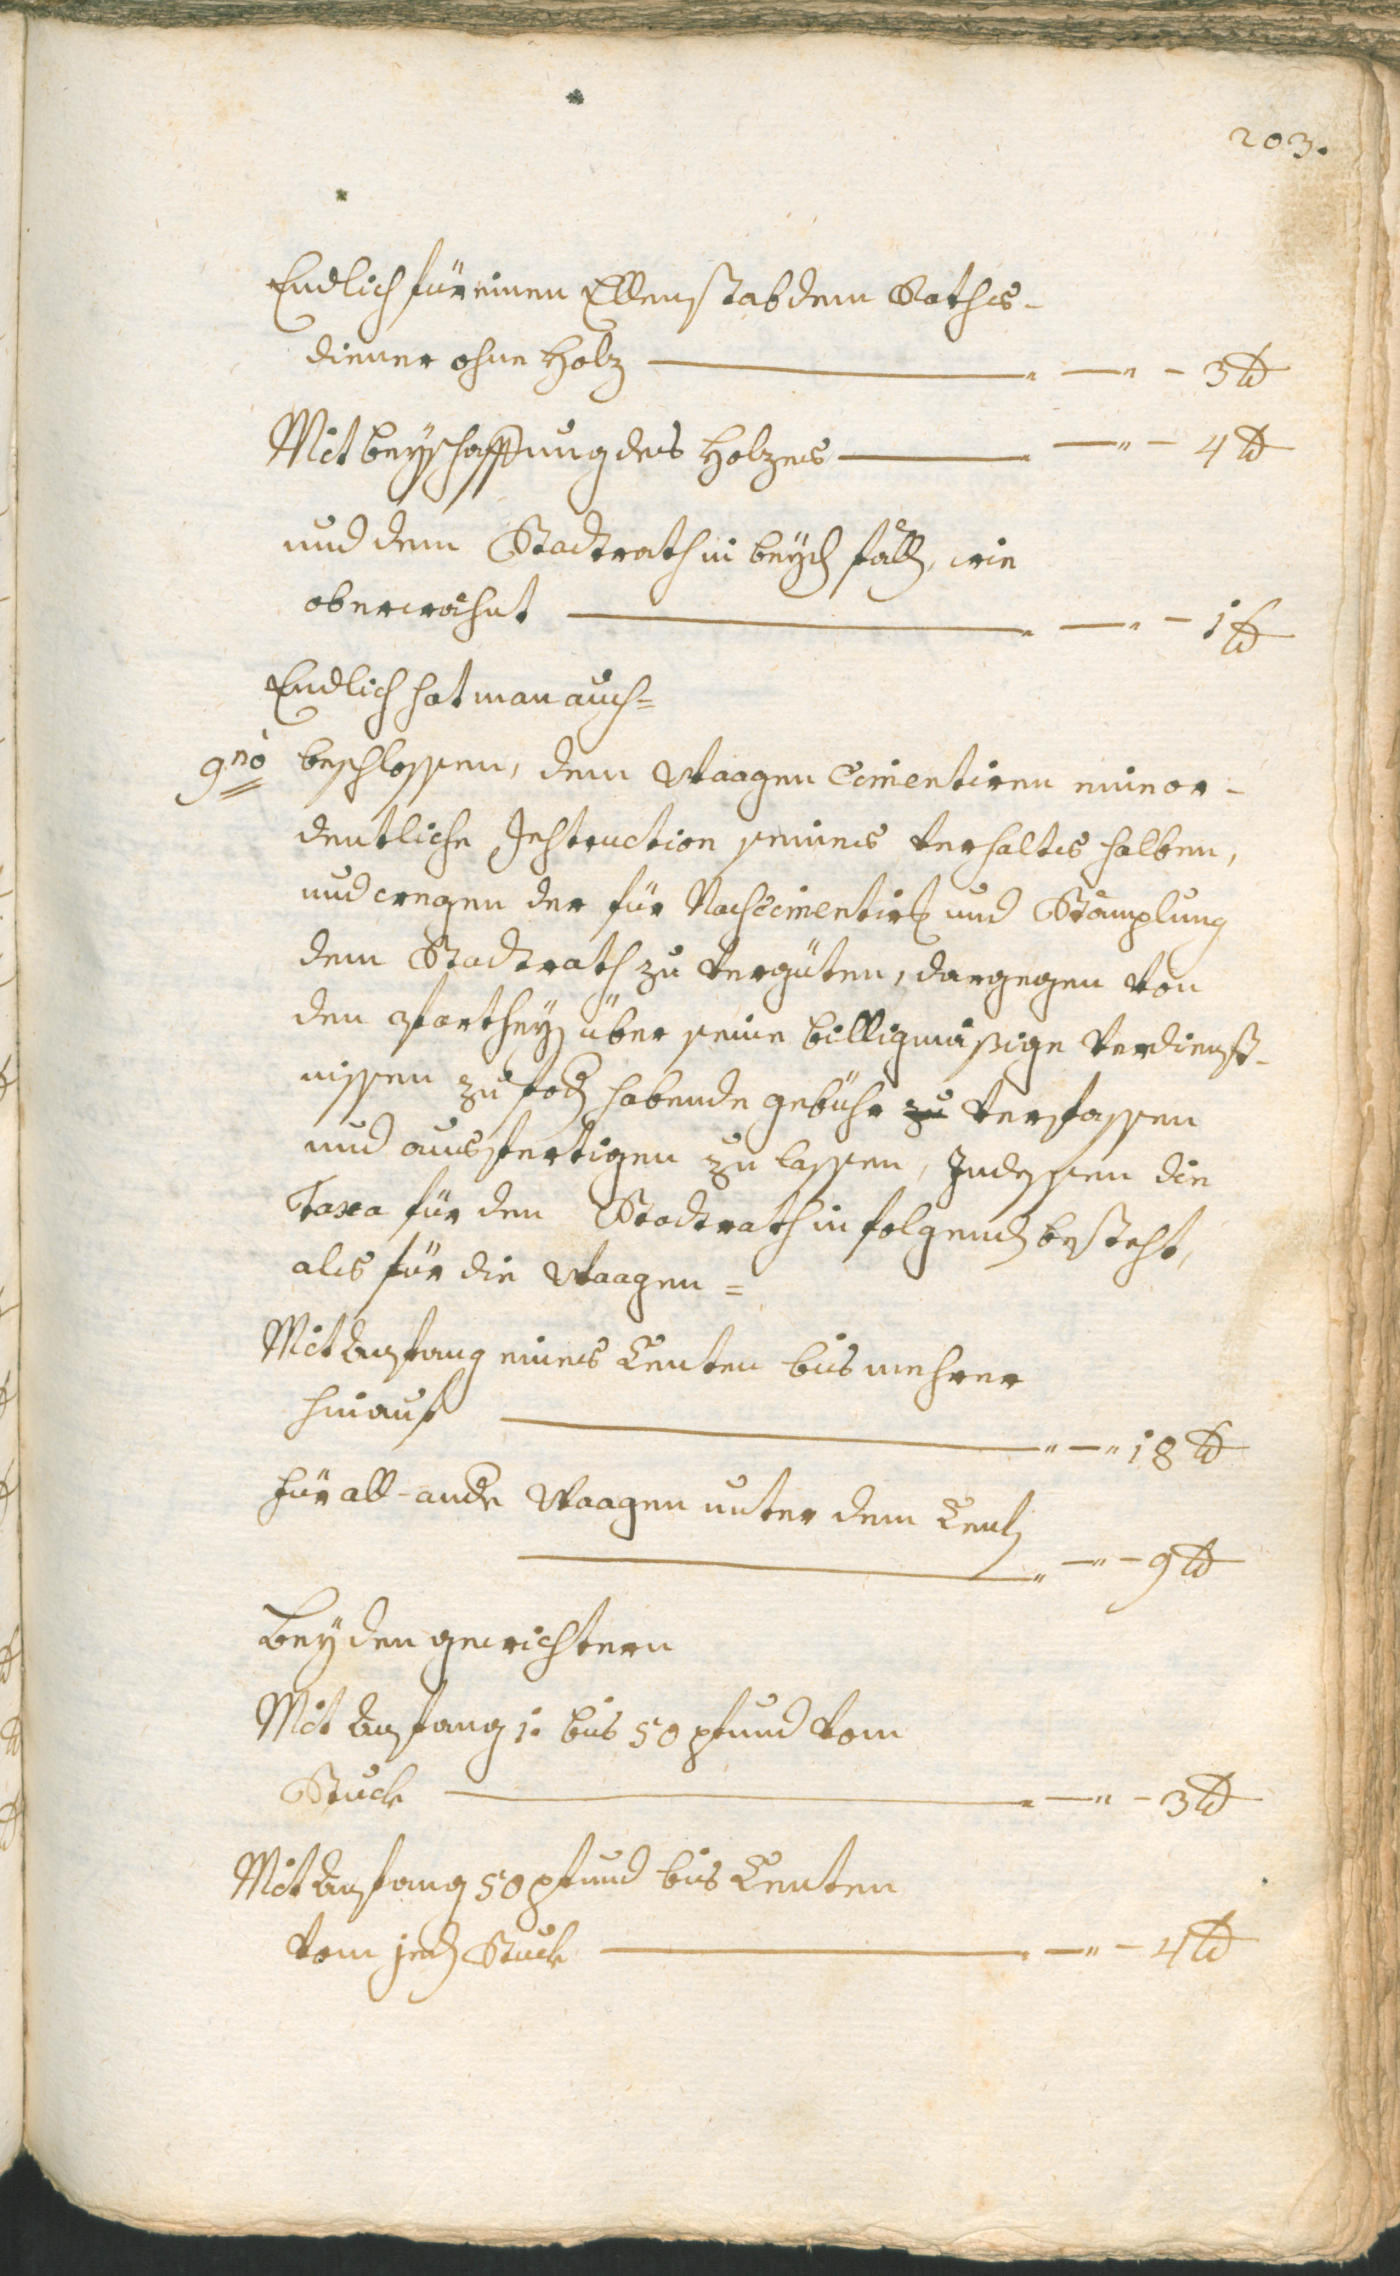 203.
Endlich für einen Ellenstab dem Raths-
diener ohne Holz — „ — „ — 3 ₰
Mit beyschaffung des Holzes — „ — „ — 4 ₰
und dem Stadtrath in beyden fällen, wie
oberwähnt — „ — „ — 1 ₰
Endlich hat man auch=
9no beschlossen, dem Waagen Cimentiren ein or-
dentliche Instruction seines Verhaltes halben,
und wegen der für Nachcimentiren und Stämplung
dem Stadtrath zu Vergüten, dargegen von
den Partheyen über seine billigmäßige Verdienst-
nissen zu fodern habende gebühr zu verfassen
und ausfertigen zu lassen, Indessen die
Taxa für den Stadtrath in folgenden besteht,
als für die Waagen =
Mit Anfang eines Centen bis mehrer
hinauf — „ — „ 18 ₰
Für all-andere Waagen unter dem Centen
— „ — „ — 9 ₰
Bey den gewichtern
Mit Anfang 1. bis 50 pfund vom
Stuck — „ — „ — 3 ₰
Mit Anfang 50 pfund bis Centen
vom jeden Stuck — „ — „ — 4 ₰